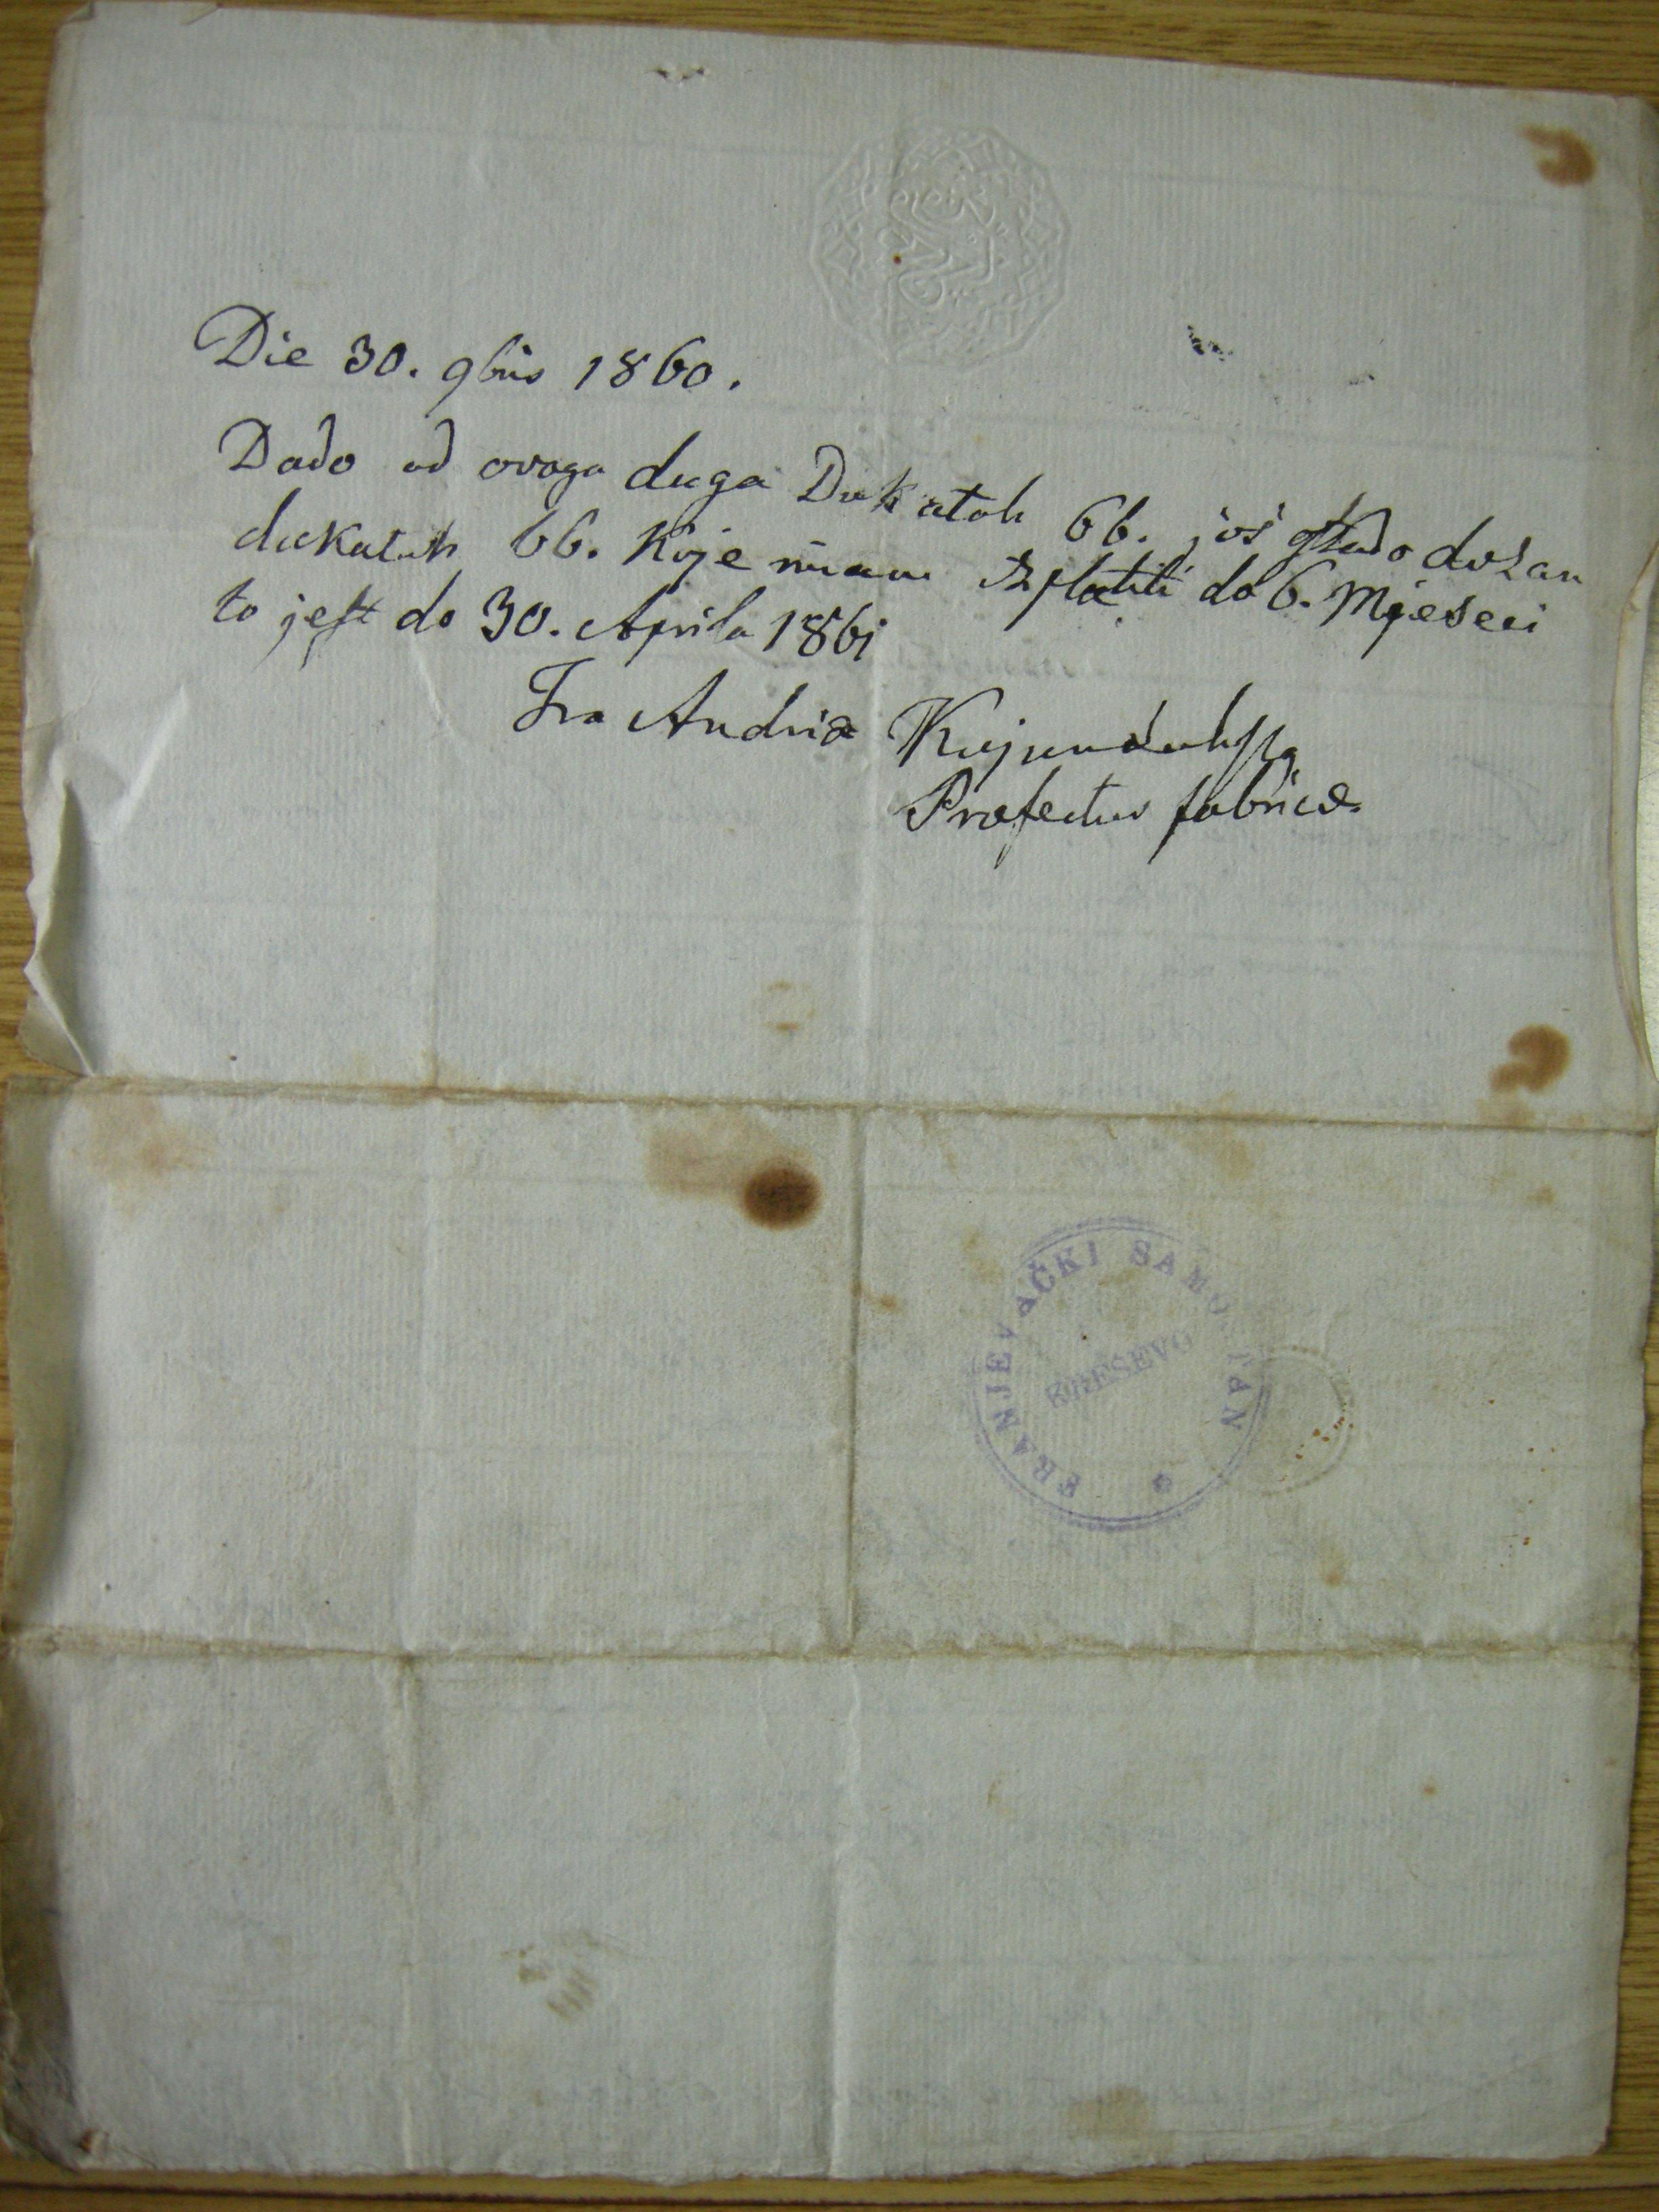 Die 30. 9bris 1860.
Dado od ovoga duga Dukatah 66. još ostado dožan
dukatah 66. Koje imam izplatiti do 6. Mjeseci
to jest do 30. Aprila 1861
Fra Andria
Præfectus fabricæ
FRANJEVAČKI SAMOSTAN
KREŠEVO